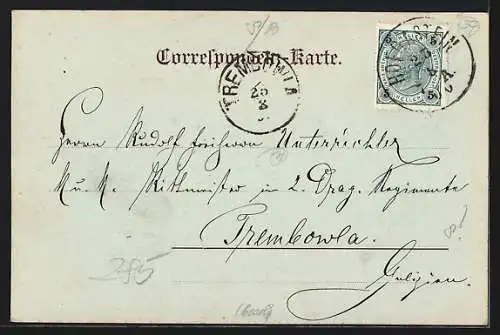 Correspondenz-Karte.
TREMBOWLA
25
3
HOFGASTEIN
5 5
5 5
Herrn Rudolf Freiherrn Unterrichter
K. u. K. Rittmeister in 2. Drag. Regimente
Trembowla.
Galizien.
285